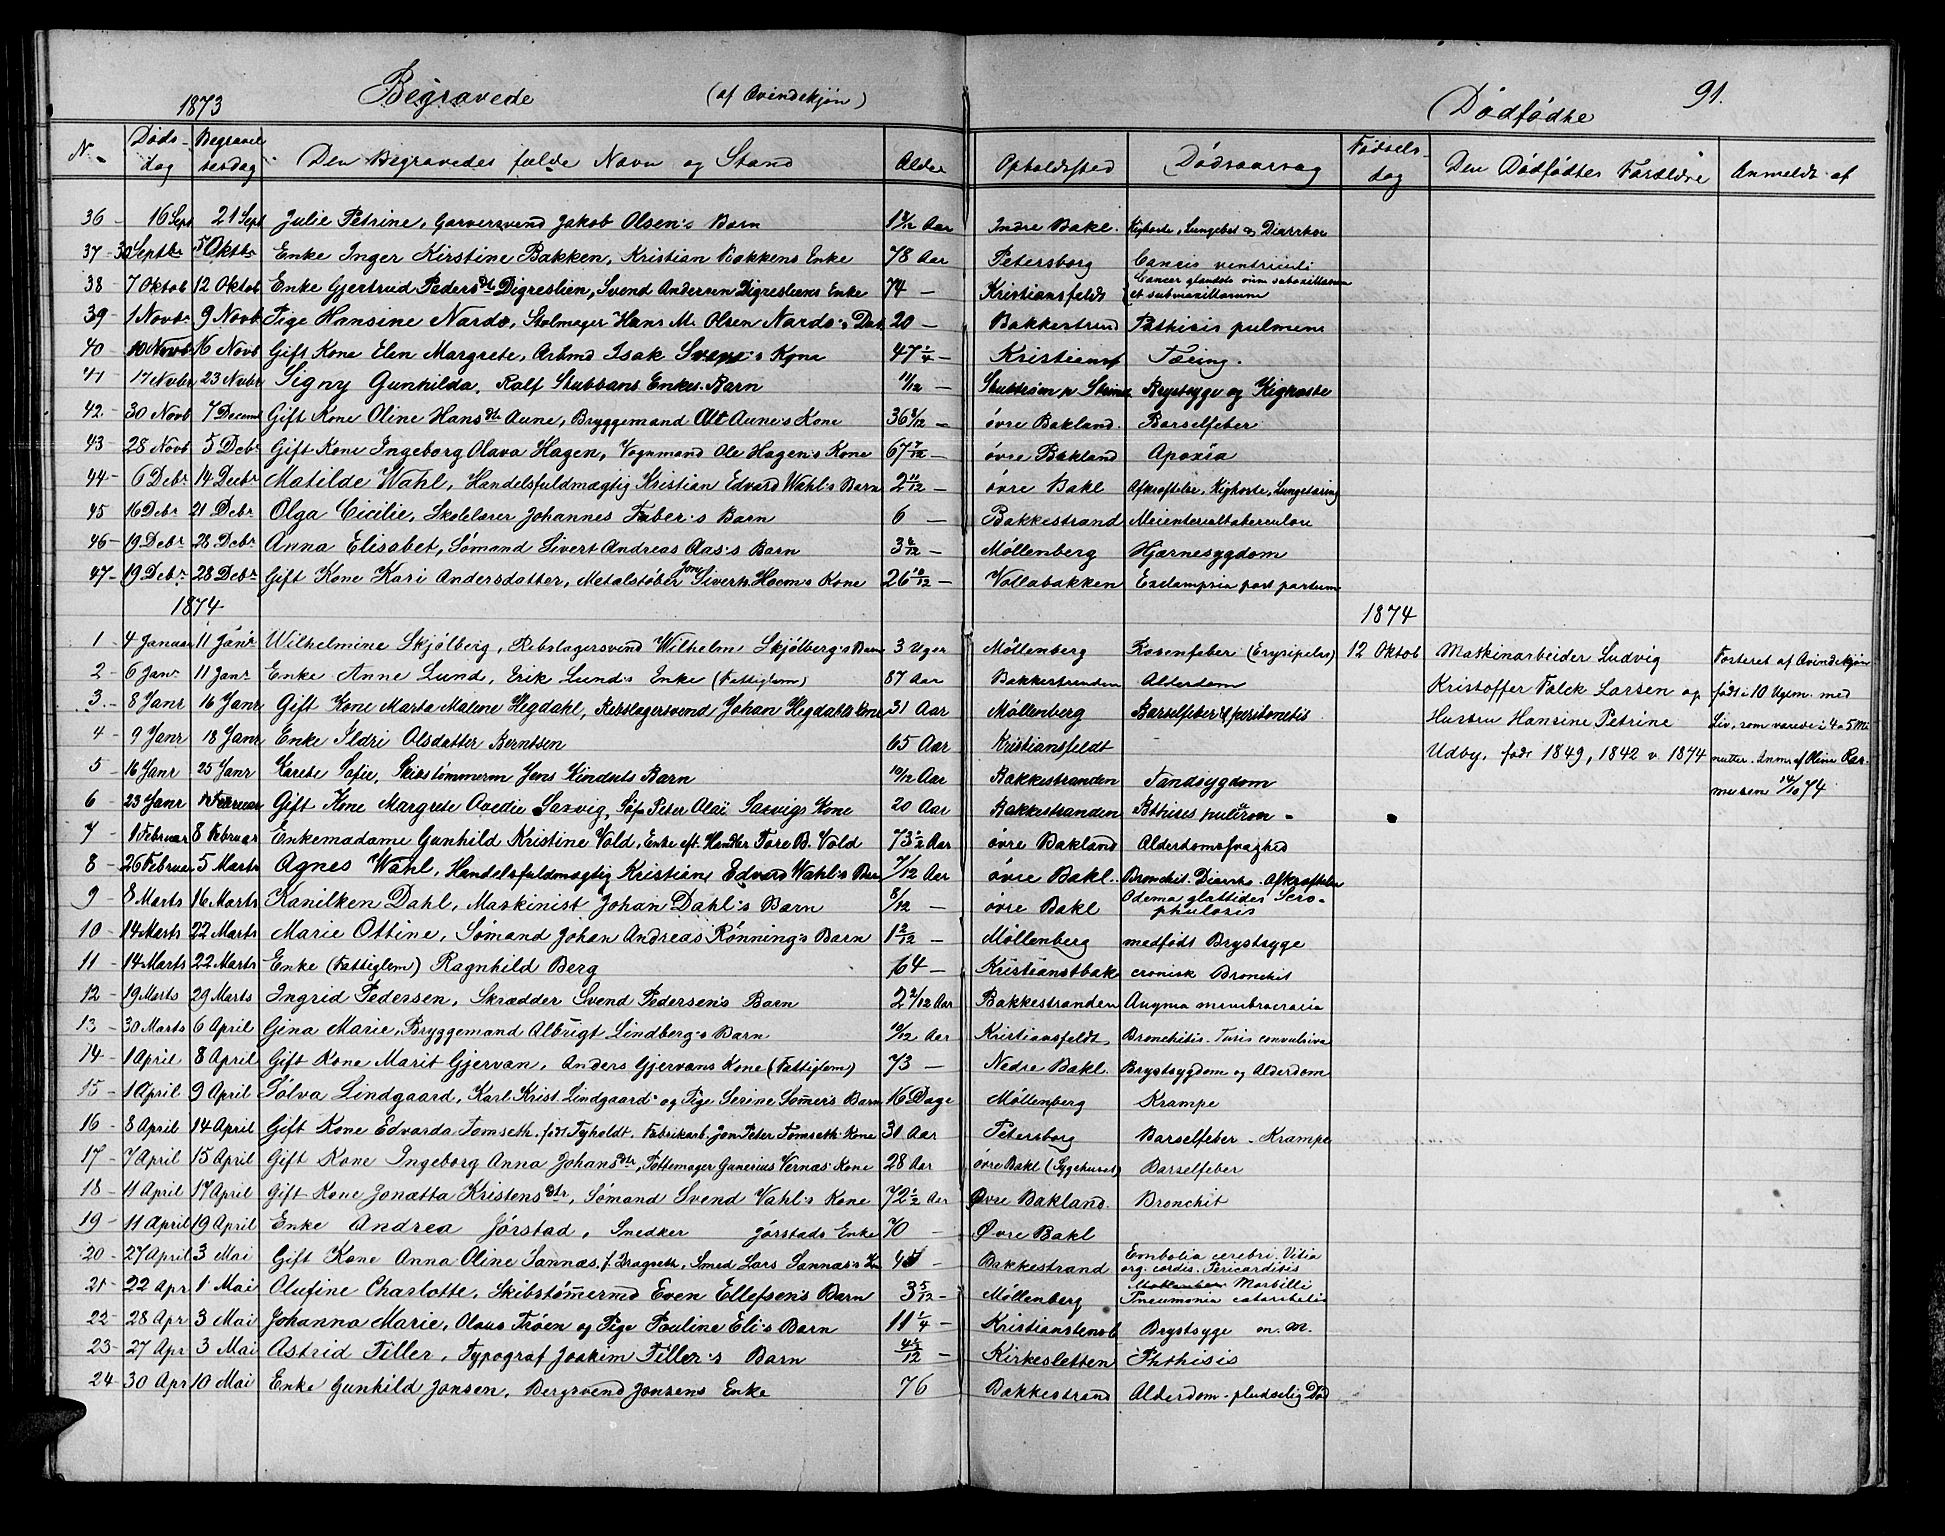 1873 Begravede (af Qvindekjøn) Dødfødte 91.
N. Døds-dag Begravelsesdag Den Begravedes fulde Navn og Stand Alder Opholdssted Dødsaarsag Fødsels-dag Den Dødfødtes Forældre Anmeldt af
36 - 16 Sept 21 Sept Julie Petrine, Garversvend Jakob Olsen's Barn Aar Indre Bakl. Kighoste, Lungebet og Diarrhoe
37 - 30 Septbr 5 Oktbr Enke Inger Kirstine Bakken, Kristian Bakkens Enke 78 Aar Petersborg Cancis ventriculi
38 - 7 Oktob 12 Oktob Enke Gjertrud Pedersdtr Digreslien, Svend Andersen Digresliens Enke 74 - Kristiansfeldt Cancer et submaxillarum
39 - 1 Novbr 9 Novb Pige Hansine Nardo, Stolmager Hans M. Olsen Nardo's Dat 20 - Bakkestrand Pthisis pulmone
40 - 10 Novb 16 Novb Gift Kone Elen Margrete, Arbmd Isak Kone 47 1/4 - Kristiansf Tæring.
41 - 17 Novbr 23 Novbr Signy Gunhilda, Ralf Stubbans Enkes Barn 11/12 - Brystsyge og Kighoste
42 - 30 Novb 7 Decemb Gift Kone Oline Hansdtr Aune, Bryggemand Alt Aune's Kone 36 - øvre Bakland. Barselfeber
43 - 28 Novb 5 Debr Gift Kone Ingeborg Olava Hagen, Vognmand Ole Hagen's Kone 67 7/12 - øvre Bakland Apoxia
44 - 6 Debr 14 Decbr Matilde Wahl, Handelsfuldmægtig Kristian Edvard Wahl's Barn 2 11/12 - øvre Bakl Afkræftelse, Kighoste, Lungetæring
45 16 Debr 21 Debr Olga Cicilie, Skolelærer Johannes Faber's Barn 6 - Bakkestrand
46 - 19 Debr 28 Debr Anna Elisabet, Sømand Sivert Andreas Aas's Barn 3 - Møllenberg Hjærnesygdom
47 - 19 Debr 28 Debr Gift Kone Kari Andersdatter, Metalstøber Jon Siverts Hoem's Kone 26 10/12 - Vollabakken Exclampsia post partum
1874 1874
1 - 4 Januar 11 Janr Wilhelmine Skjølberg, Rebslagersvend Wilhelm Skjølberg's Barn 3 Uger Møllenberg Rosenfeber (Erysipelas) 12 Oktob Maskinarbeider Ludvig Fosteret af Qvindekjøn
2 - 6 Janr 11 Janr Enke Anne Lund, Erik Lund's Enke (Fattiglem) 87 Aar Bakkestranden Alderdom Kristoffer Falck Larsen og født i 10 Ugem. med
3. - 8 Janr 16 Janr Gift Kone Marta Malene Hegdahl, Rebslagersvend Johan Hegdahls Kone 31 Aar Møllenberg Barselfeber & peritonetis Hustru Hansine Petrine Liv, som varede i 4 a 5 Mi
4 - 9 Janr 18 Janr Enke Ildri Olsdatter Berntsen 65 Aar Kristiansfeldt Udby, født 1849, 1842 v. 1874 nutter. Anm. af Oline Ras-
5 - 16 Janr 25 Janr Karete Sofie, Skibstømmerm Jens Kinduts Barn 10/12 Aar Bakkestranden Tandsygdom musen 14/10 74
6 - 23 Janr Februar Gift Kone Margrete Avedie Saxvig, Søf. Peter Olai Saxvigs Kone 20 Aar Bakkestranden Pthises pulmon -
7 - 1 Februar 8 Februar Enkemadame Gunhild Kristine Vold, Enke eft. Handler Tore B. Vold 73 1/2 Aar øvre Bakland Alderdomsfvaghed
8 - 26 Februar 5 Marts Agnes Wahl, Handelsfuldmægtig Kristian Edvard Wahl's Barn 7/12 Aar øvre Bakl.. Bronchit. Diarrho. Afkræftelse
9 - 8 Marts 16 Marts Kanilken Dahl, Maskinist Johan Dahl's Barn 8/12 - øvre Bakl Odema glattides Scro-phulosis
10 - 14 Marts 22 Marts Marie Ottine, Sømand Johan Andreas Rønning's Barn 1 2/12 - Møllenberg medfødt Brystsyge
11 - 14 Marts 22 Marts Enke (Fattiglem) Ragnhild Berg 64 - Kristianstbak cronisk Bronchit
12 - 19 Marts 29 Marts Ingrid Pedersen, Skrædder Svend Pedersen's Barn 2 2/12 Aar Bakkestranden
13 - 30 Marts 6 April Gina Marie, Bryggemand Albrigt Lindberg's Barn 10/12 Aar Kristiansfeldt Bronchitis. Tusis convulsiva
14 - 1 April 8 April Gift Kone Marit Gjervan, Anders Gjervans Kone (Fattiglem) 73 - Nedre Bakl. Brystsygdom og Alderdom
15 - 1 April 9 April Sølva Lindgaard, Karl Krist. Lindgaard og Pige Serine Somer's Barn 16 Dage Møllenberg Krampe
16 - 8 April 14 April Gift Kone Edvarda Tomseth, født Tyholdt, Fabrikarb. Jon Peter Tomseth Kone 30 Aar Petersborg Barselfeber - Krampe
17 - 7 April 15 April Gift Kone Ingeborg Anna Johansdtr, Pottemager Gunerius Vernæs Kone 28 Aar øvre Bakl (Sygehuset) Barselfeber
18 - 11 April 17 April Gift Kone Jonætta Kristensdtr, Sømand Svend Wahl's Kone 72 1/2 Aar Øvre Bakland. Bronchit
19 - 11 April 19 April Enke Andrea Jørstad, Snedker Jørstads Enke 70 - Øvre Bakl
20 - 27 April 3 Mai Gift Kone Anna Oline Sannæs, f. Dragseth, Smed Lars Sannæs's Kone - Bakkestrand Embolia cerebri. Vitia org. cordis. Pericarditis
21 - 22 Apr 1 Mai Olufine Charlotte, Skibstømermd Even Ellefsen's Barn 3 5/12 - Møllenberg Morbilli Pneumonia
22 - 28 Apr 3 Mai Johanna Marie, Olaus Trøen og Pige Pauline Eli's Barn 11 1/4 - Kristianstensb Brystsyge m. m.
23 - 27 Apr 3 Mai Astrid Tiller, Typograf Joakim Tiller's Barn - Kirkesletten Phthisis
24 - 30 Apr 10 Mai Enke Gunhild Jonsen, Bergsvend Jonsens Enke 76 Bakkestrand Alderdom - pludselig Død